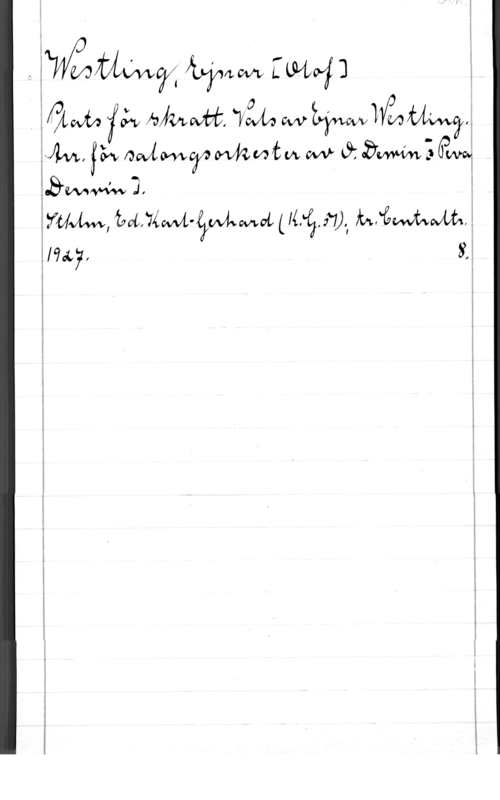 Westling, Ejnar [Olof]
Plats för skratt. Vals av Ejnar Westling.
Arr. för salongsorkester av O. Dewin [
Dewin].
Sthlm, Ed. Karl-Gerhard (K.G. 57); tr. Centraltr.
1927. 8.